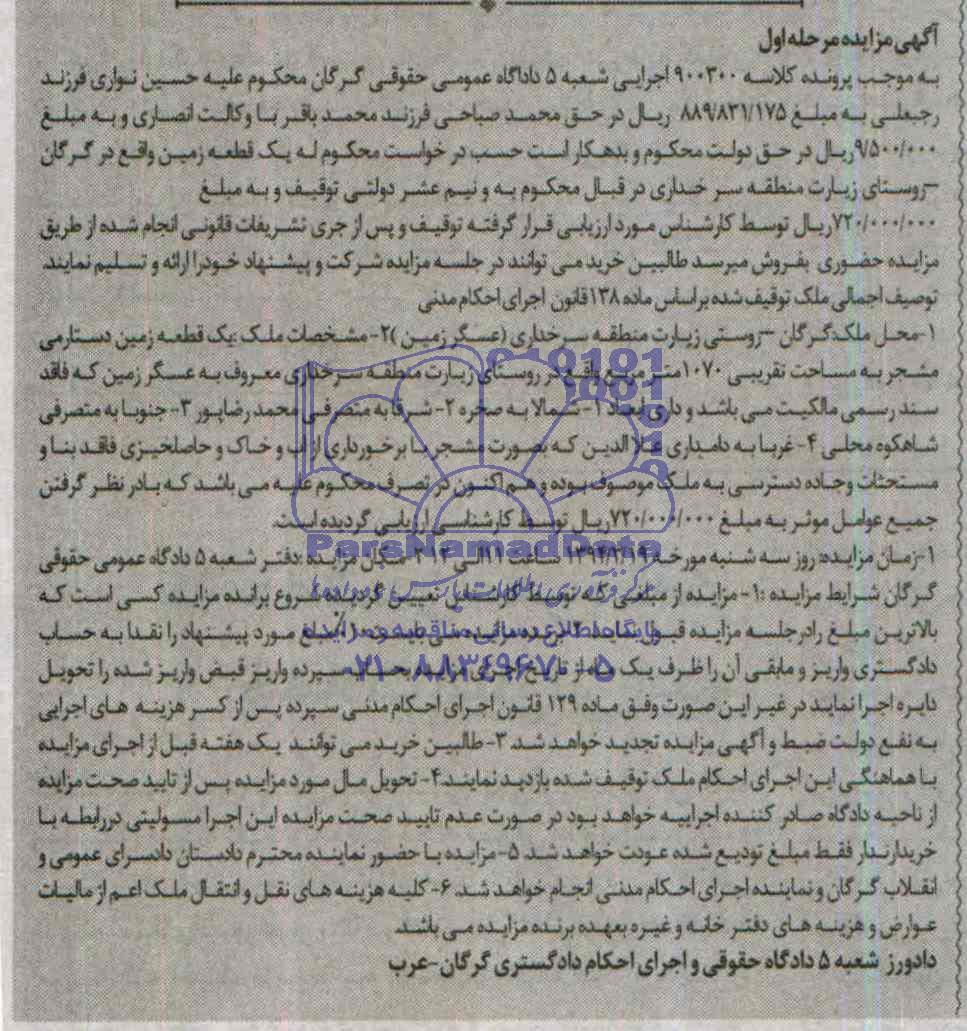 آگهی مزایده مرحله اول
به موجب پرونده کلاسه ۹۰۰۳۰۰ اجرایی شعبه ۵ دادگاه عمومی حقوقی گرگان محکوم علیه حسین نواری فرزند
رجبعلی به مبلغ ۸۸۹/۸۳۱/۱۷۵ ریال در حق محمد صباحی فرزند محمد باقر با وکالت انصاری و به مبلغ
۹/۵۰۰/۰۰۰ریال در حق دولت محکوم و بدهکار است حسب در خواست محکوم له یک قطعه زمین واقع در گرگان
–روستای زیارت منطقه سر خداری در قبال محکوم به و نیم عشر دولتی توقیف و به مبلغ
۷۲۰/۰۰۰/۰۰۰ریال توسط کارشناس مورد ارزیابی قرار گرفته توقیف و پس از جری تشریفات قانونی انجام شده از طریق
مزایده حضوری بفروش میرسد طالبین خرید می توانند در جلسه مزایده شرکت و پیشنهاد خودرا ارائه و تسلیم نمایند.
توصیف اجمالی ملک توقیف شده براساس ماده ۱۳۸قانون اجرای احکام مدنی
۱-محل ملک:گرگان –روستی زیارت منطقه سرخداری (عسگر زمین )۲- مشخصات ملک :یک قطعه زمین دستارمی
مشجر به مساحت تقریبی ۱۰۷۰متر مربع واقع در روستای زیارت منطقه سرخداری معروف به عسگر زمین که فاقد
سند رسمی مالکیت می باشد و داری ابعاد ۱- شمالا به صخره ۲- شرقا به متصرفی محمد رضاپور ۳- جنوبا به متصرفی
شاهکوه محلی ۴- غربا به دامداری علاالدین که بصورت مشجر با برخورداری از آب و خاک و حاصلخیزی فاقد بنا و
مستحثات وجاده دسترسی به ملک موصوف بوده و هم اکنون در تصرف محکوم علیه می باشد که بادر نظر گرفتن
جمیع عوامل موثر به مبلغ ۷۲۰/۰۰۰/۰۰۰ریال توسط کارشناسی ارزیابی گردیده است.
ParsNamadData
۱-زمان مزایده: روز سه شنبه مورخه ساعت مکان مزایده :دفتر شعبه ۵ دادگاه عمومی حقوقی
گرگان شرایط مزایده :۱- مزایده از مبلغی که توسط کارشناس تعیین گردیده شروع برانده مزایده کسی است که
بالاترین مبلغ رادرجلسه مزایده قبول مبلغ مورد پیشنهاد را نقدا به حساب
پایگاه اطلاع رسانی مناقصه و مزایده
دادگستری واریز و مابقی آن را ظرف یک ماه از تاریخ سپرده واریز قبض واریز شده را تحویل
۰۲۱-۸۸۳۴۹۶۷۰-۵
دایره اجرا نماید در غیر این صورت وفق ماده ۱۲۹ قانون اجرای احکام مدنی سپرده پس از کسر هزینه های اجرایی
به نفع دولت ضبط و آگهی مزایده تجدید خواهد شد. ۳- طالبین خرید می توانند یک هفته قبل از اجرای مزایده
با هماهنگی این اجرای احکام ملک توقیف شده بازدید نمایند.۴- تحویل مال مورد مزایده پس از تایید صحت مزایده
از ناحیه دادگاه صادر کننده اجراییه خواهد بود در صورت عدم تایید صحت مزایده این اجرا مسولیتی دررابطه با
خریدارندار فقط مبلغ تودیع شده عودت خواهد شد. ۵- مزایده با حضور نماینده محترم دادستان دادسرای عمومی و
انقلاب گرگان و نماینده اجرای احکام مدنی انجام خواهد شد. ۶- کلیه هزینه های نقل و انتقال ملک اعم از مالیات
عوارض و هزینه های دفتر خانه و غیره بعهده برنده مزایده می باشد.
دادورز شعبه ۵ دادگاه حقوقی و اجرای احکام دادگستری گرگان-عرب